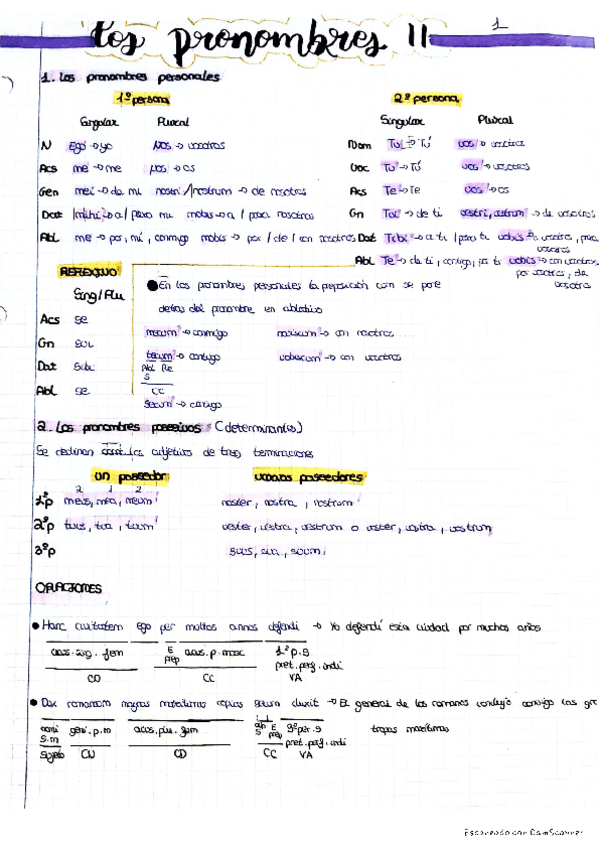 Los pronombres II
1
1. Los pronombres personales
1ª persona
Singular Plural
N Ego → yo Nos → nosotros
Acs me → me nos → os
Gen mei → de mi nostri/nostrum → de nosotros
Dat a / para mi nobis → a / para nosotros
Abl me → por, mí, conmigo nobis → por / de / con nosotros
2ª persona
Singular Plural
Nom Tu → Tú vos → vosotros
Voc Tu → Tú vos → vosotros
Acs Te → Te vos → os
Gn Tui → de ti vestri, vestrum → de vosotros
Dat Tibi → a ti / para ti vobis → a vosotros, para
vosotros
Abl Te → de ti, contigo, por ti vobis → con vosotros
por vosotros, de
vosotros
REFLEXIVO
Sing/Plu
Acs se
Gn sui
Dat sibi
Abl se
● En los pronombres personales la preposición cum se pone
detrás del pronombre en ablativo
mecum → conmigo nobiscum → con nosotros
tecum → contigo vobiscum → con vosotros
Abl
S
CC
secum → consigo
2. Los pronombres posesivos (determinantes)
Se declinan adjetivos de tres terminaciones
un poseedor varios poseedores
2 1 2
1ªp meus, mea, meum noster, nostra, nostrum
2ªp tuus, tua, tuum vester, vestra, vestrum o voster, vostra, vostrum
3ªp suus, sua, suum
ORACIONES
● Hanc civitatem ego per multos annos defendi → Yo defendí esta ciudad por muchos años
acus. sig. fem E prep acus. p. masc 1ª p.s
pret. perf. indi
CD CC VA
● Dux romanorum magnas maritimas copias secum duxit → El general de los romanos condujo consigo las gr
tropas marítimas
nomi s.m geni. p.m acus. plu. fem abl s E prep 3ª per. s
pret. perf. indi
Sujeto CN CD CC VA
Escaneado con CamScanner